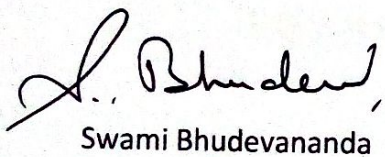 S. Bhudev,
Swami Bhudevananda